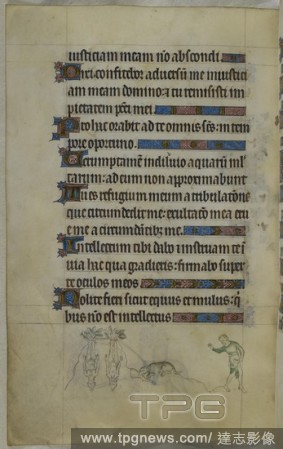 iusticiam meam nō abscondi.
Dixi confitebor aduersū me iniustici
am meam domino: ⁊ tu remisisti im
pietatem pcti mei
Pro hac orabit ad te omnis scs: in tem
pore oportuno.
Uerumptamē in diluuio aquarū mĺ
tarum: ad eum non approximabunt
Tu es refugium meum a tribulatōne
que circumdedit me: exultacō mea erue
me a circumdātib; me.
Intellectum tibi dabo ⁊ instruam te ī
uia hac qua gradieris: firmabo super
te oculos meos
Nolite fieri sicut equus et mulus: q̄
bus nō est intellectus
TPG
www.tpgnews.com/ 達志影像